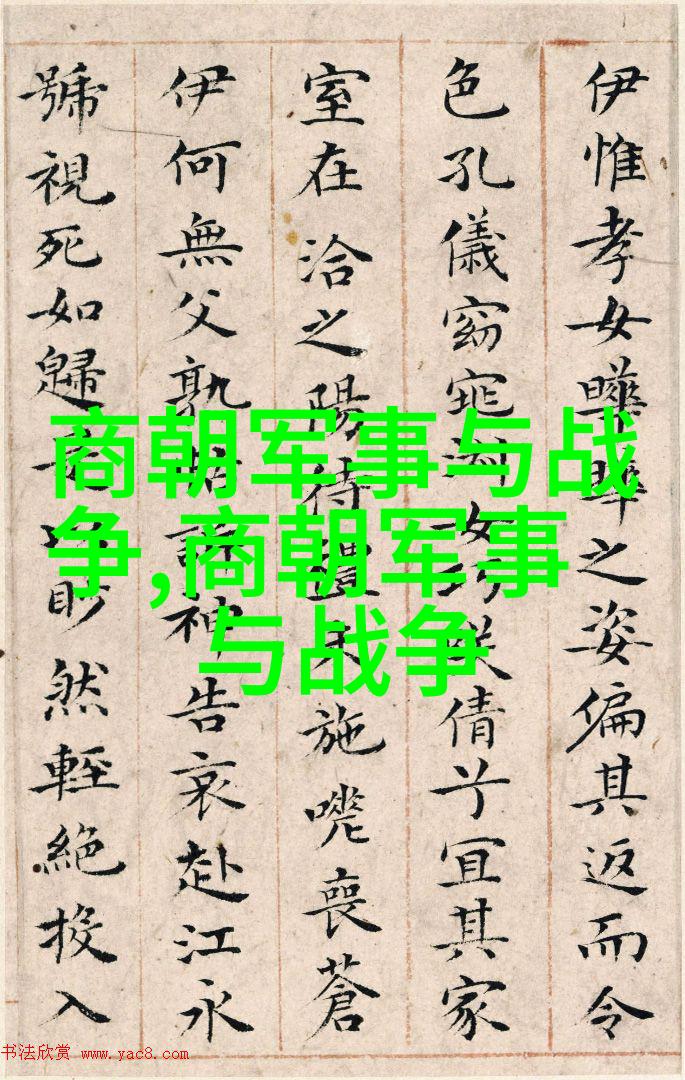 伊惟孝女曄曄之姿偏其返而令
色孔儀窈窕淑女巧笑倩兮宜其家
室在洽之陽待禮未施嗟喪蒼
伊何無父孰怙訴神告哀赴江永
號視死如歸是以眇然輕絕投入
商朝军事与战
争,商朝军事
与战争
书法欣赏 www.yac8.com